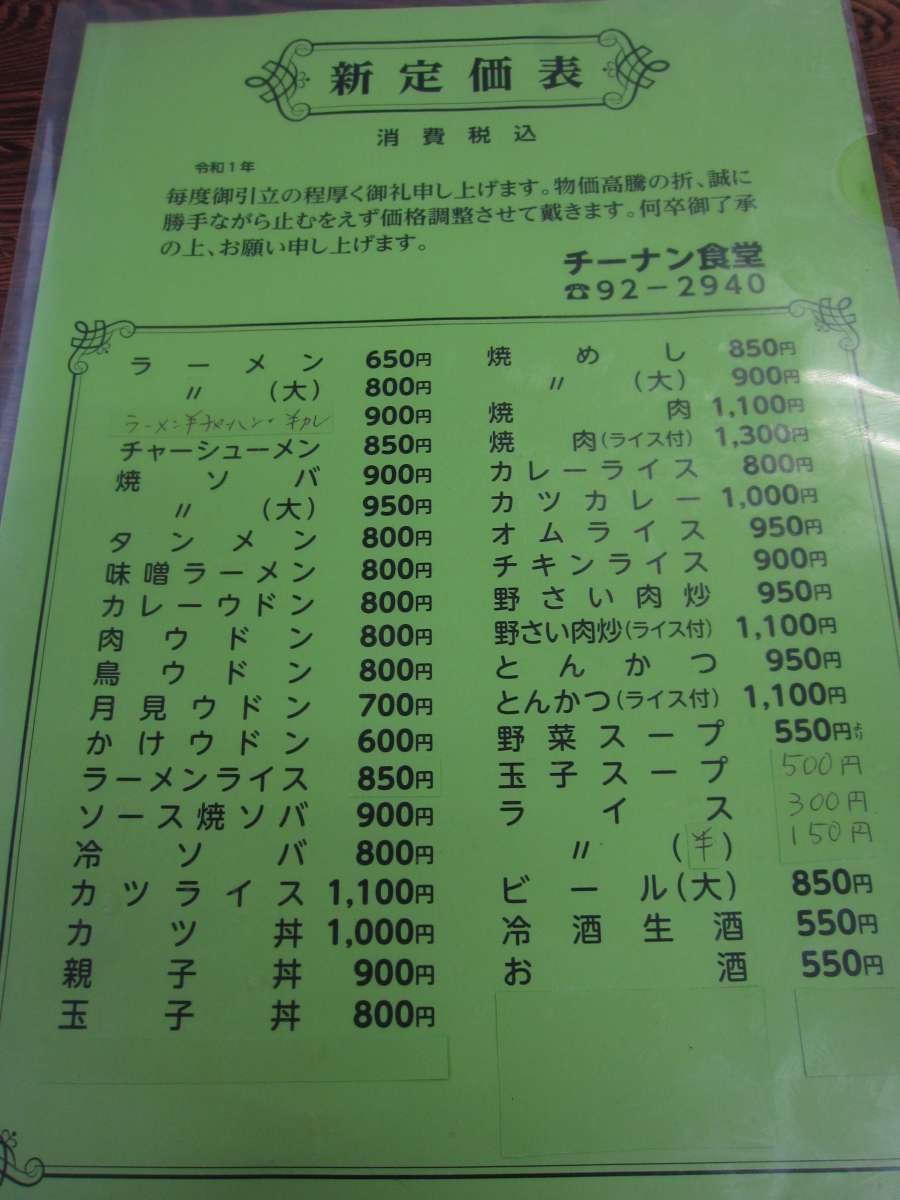 新定価表
消費税込
令和1年
毎度御引立の程厚く御礼申し上げます。物価高騰の折、誠に
勝手ながら止むをえず価格調整させて戴きます。何卒御了承
の上、お願い申し上げます。
チーナン食堂
☎92－2940
ラーメン 650円
〃 (大) 800円
ラーメン半チャーハン・半カレ 900円
チャーシューメン 850円
焼ソバ 900円
〃 (大) 950円
タンメン 800円
味噌ラーメン 800円
カレーウドン 800円
肉ウドン 800円
鳥ウドン 800円
月見ウドン 700円
かけウドン 600円
ラーメンライス 850円
ソース焼ソバ 900円
冷ソバ 800円
カツライス 1,100円
カツ丼 1,000円
親子丼 900円
玉子丼 800円
焼めし 850円
〃 (大) 900円
焼肉 1,100円
焼肉(ライス付) 1,300円
カレーライス 800円
カツカレー 1,000円
オムライス 950円
チキンライス 900円
野さい肉炒 950円
野さい肉炒(ライス付) 1,100円
とんかつ 950円
とんかつ(ライス付) 1,100円
野菜スープ 550円より
玉子スープ 500円
ライス 300円
〃 (半) 150円
ビール(大) 850円
冷酒生酒 550円
お酒 550円